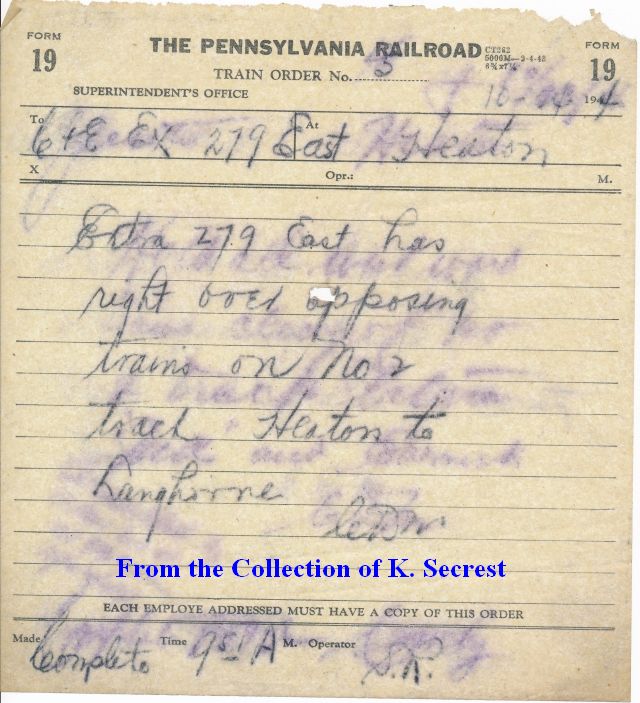 FORM
19
THE PENNSYLVANIA RAILROAD
CT262
5000M—3-4-42
6¾x7¼
FORM
19
TRAIN ORDER No. 3
SUPERINTENDENT'S OFFICE
10- 1944
To C+E Ex 279 East At Heaton
X Opr.: M.
Extra 279 East has
right over opposing
trains on No 2
track Heaton to
Langhorne
From the Collection of K. Secrest
EACH EMPLOYE ADDRESSED MUST HAVE A COPY OF THIS ORDER
Made Complete Time 951 A M. Operator S.R.